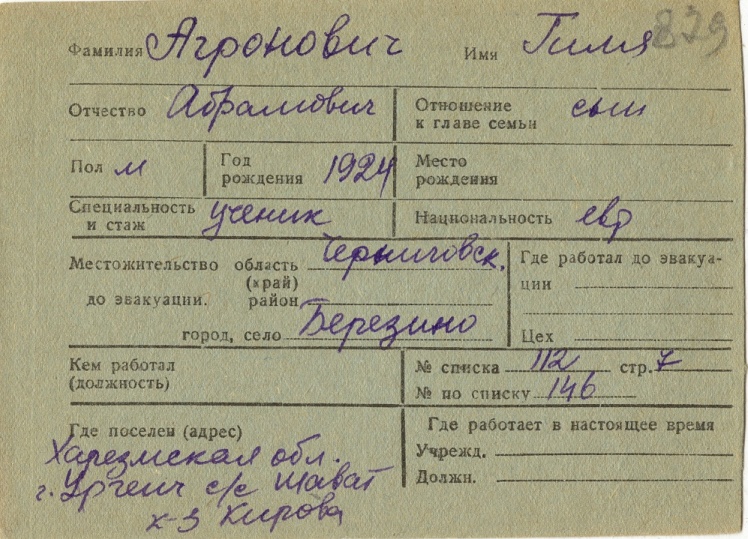 Фамилия Агронович Имя Гиля 879
Отчество Абрамович Отношение к главе семьи сын
Пол м Год рождения 1924 Место рождения
Специальность и стаж ученик Национальность евр
Местожительство до эвакуации. область (край) Черниговск.
район
город, село Березино
Где работал до эвакуа-
ции
Цех
Кем работал
(должность)
№ списка 112 стр. 7
№ по списку 146
Где поселен (адрес)
Харезмская обл.
г. Ургенч с/с Шават
к-з Кирова
Где работает в настоящее время
Учрежд.
Должн.